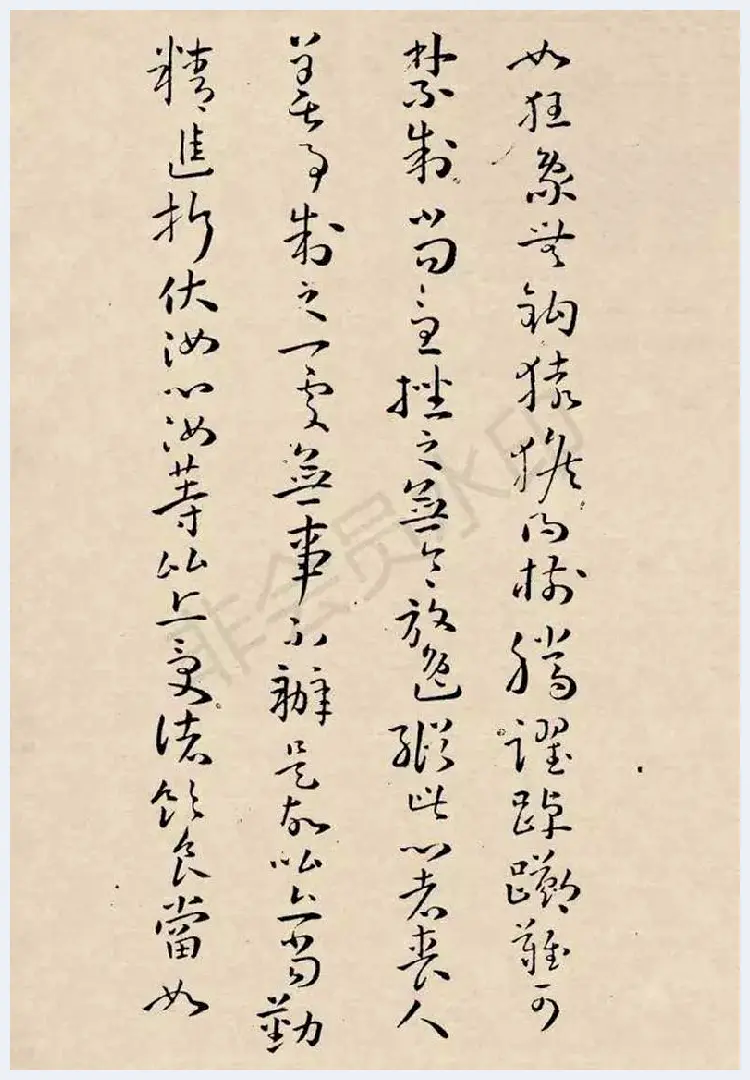 如狂象無鈎猿猴得樹騰躍踔躑難可
禁制當急挫之無令放逸縱此心者喪人
善事制之一處無事不辦是故比丘當勤
精進折伏汝心汝等比丘受諸飲食當如
非会员水印